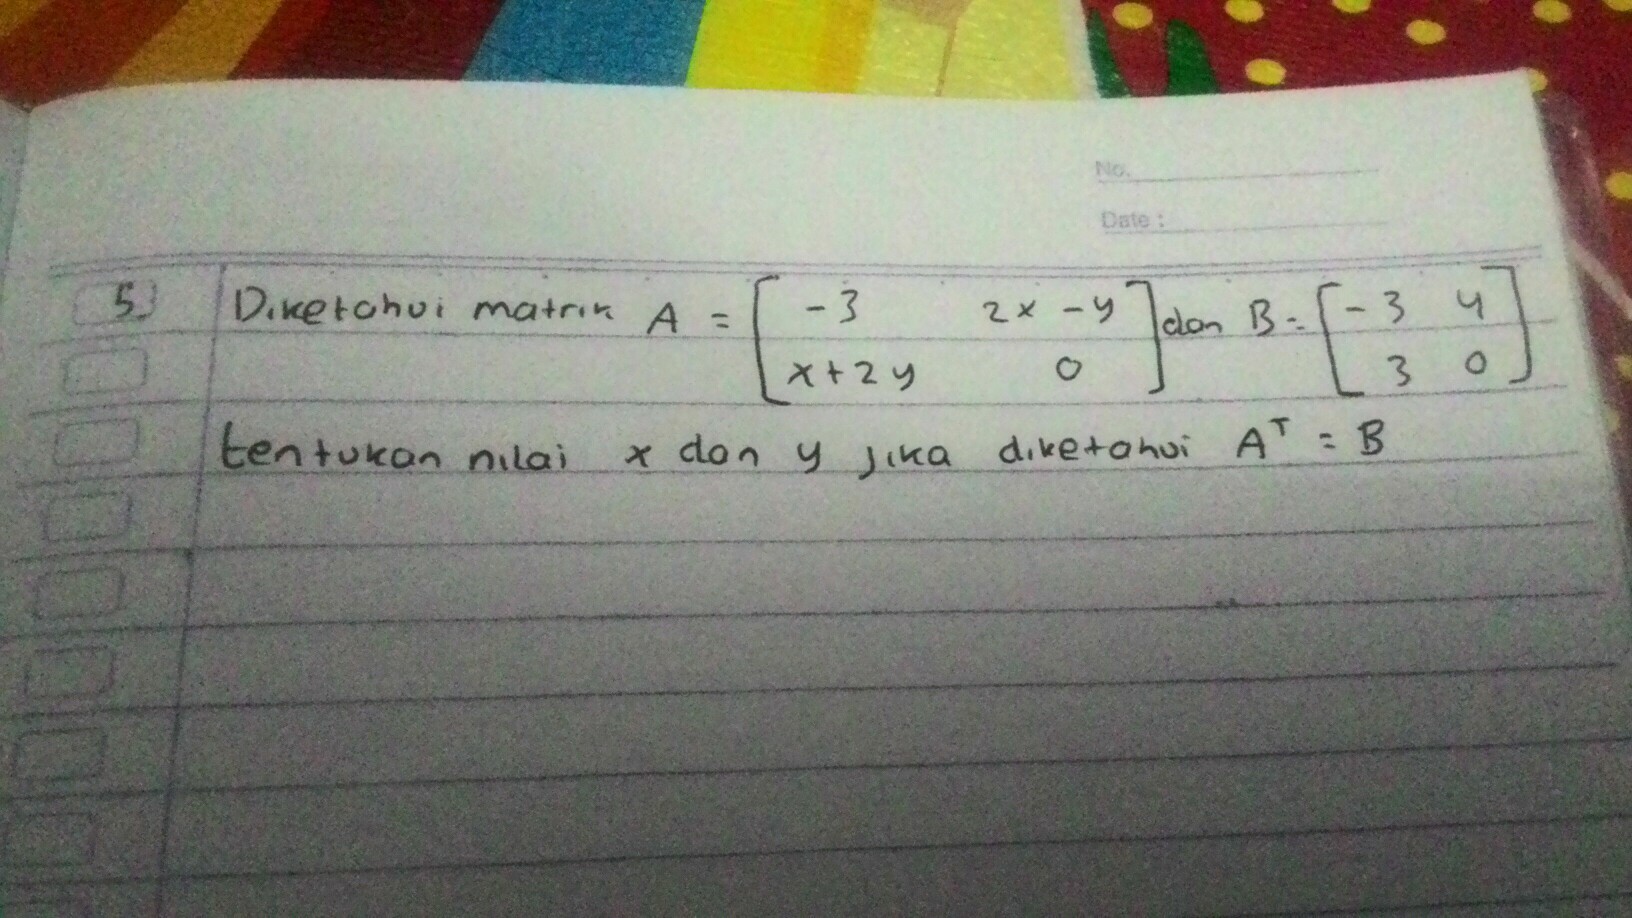 No.
Date :
5) Diketahui matrik A = [ -3 2x - y ] dan B = [ -3 4 ]
[ x + 2y 0 ] [ 3 0 ]
tentukan nilai x dan y jika diketahui Aᵀ = B